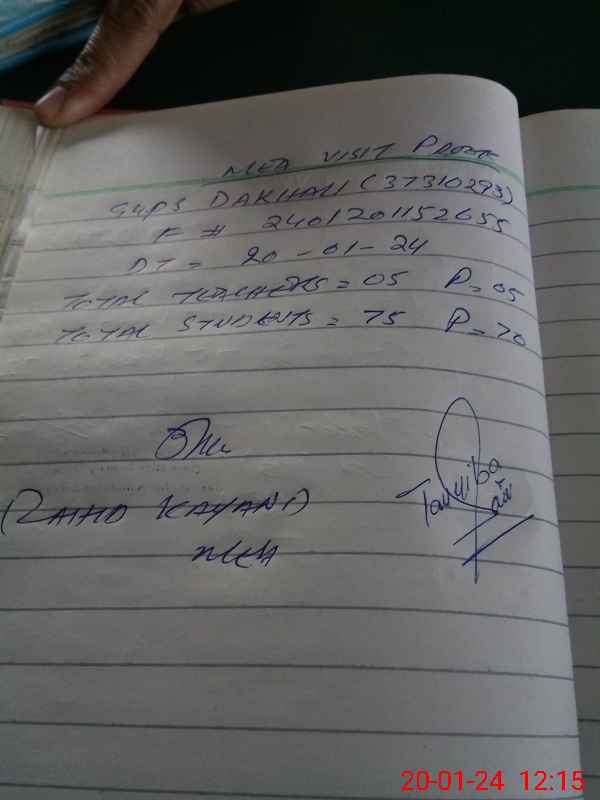 MEA VISIT PROOF
GGPS DAKHALI (37310293)
F # 2401201152655
DT = 20-01-24
TOTAL TEACHERS = 05 P = 05
TOTAL STUDENTS = 75 P = 70
(ZAHID KAYANI)
MEA
Tayyiba
20-01-24 12:15